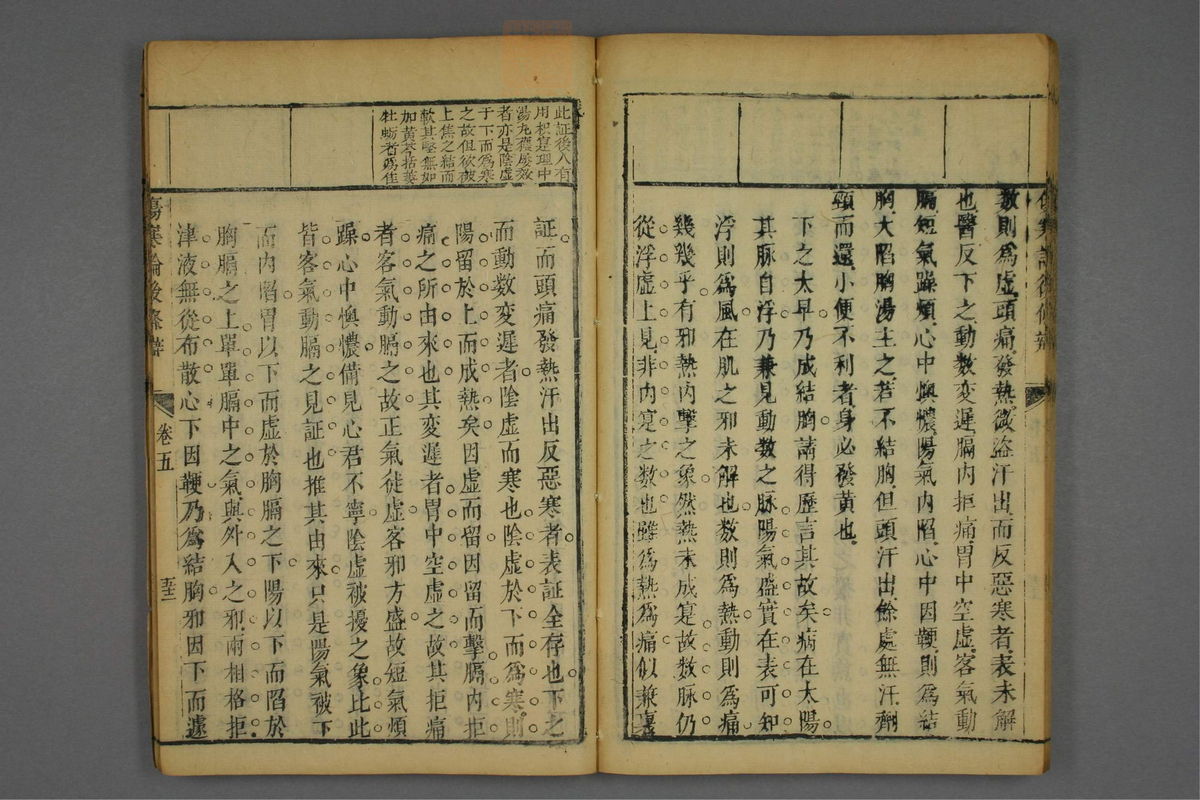 數則為虛頭痛發熱微盜汗出而反惡寒者表未解
也醫反下之動數変遲膈內拒痛胃中空虛客氣動
膈短氣躁煩心中懊憹陽氣內陷心中因鞕則為結
胸大陷胸湯主之若不結胸但頭汗出餘處無汗劑
頸而還小便不利者身必發黃也
下之太早乃成結胸請得歷言其故矣病在太陽
其脉自浮乃兼見動數之脉陽氣盛實在表可知
浮則為風在肌之邪未解也数則為熱動則為痛
幾幾乎有邪熱內擊之象然熱未成寔故数脉仍
從浮虛上見非內寔之数也雖為熱為痛似兼裏
傷寒論後條辨
此証後人有
用枳寔理中
湯丸獲屡效
者亦是陰虛
于下而為寒
之故但欲破
上焦之結而
軟其堅無如
加黃芩括蔞
牡蛎者為佳
証而頭痛發熱汗出反惡寒者表証全存也下之
而動数变遲者陰虛而寒也陰虛於下而為寒則
陽留於上而成熱矣因虛而留因留而擊膈內拒
痛之所由來也其变遲者胃中空虛之故其拒痛
者客氣動膈之故正氣徒虛客邪方盛故短氣煩
躁心中懊憹備見心君不寧陰虛被擾之象比此
皆客氣動膈之見証也推其由來只是陽氣被下
而內陷胃以下而虛於胸膈之下陽以下而陷於
胸膈之上單單膈中之氣與外入之邪兩相格拒
津液無從布散心下因鞕乃為結胸邪因下而遽
傷寒論後條辨
卷五